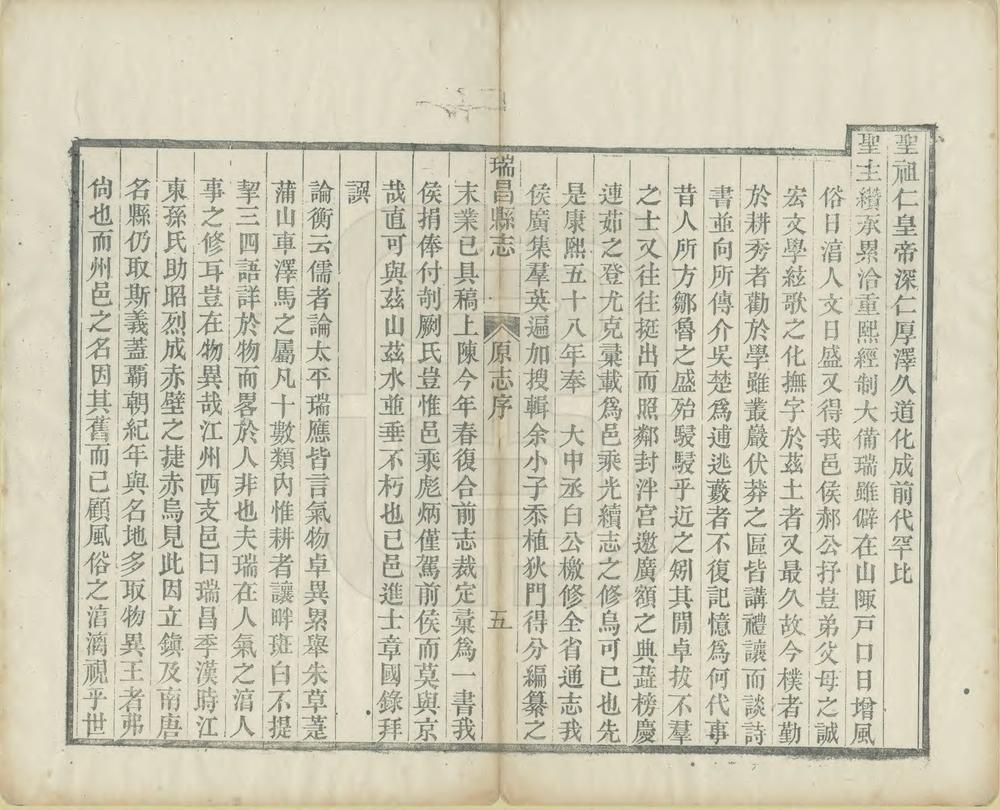 聖祖仁皇帝深仁厚澤久道化成前代罕比
聖主纘承累洽重熙經制大備瑞雖僻在山陬戸口日增風
俗日湻人文日盛又得我邑侯郝公抒豈弟父母之誠
宏文學絃歌之化撫字於茲土者又最久故今樸者勤
於耕秀者勸於學雖叢巖伏莽之區皆講禮讓而談詩
書並向所傳介吳楚爲逋逃藪者不復記憶爲何代事
昔人所方鄒魯之盛殆駸駸乎近之矧其閒卓拔不羣
之士又往往挺出而照鄰封泮宮邀廣額之典蕋榜慶
連茹之登尤克彙載爲邑乘光續志之修烏可已也先
是康熙五十八年奉　大中丞白公檄修全省通志我
侯廣集羣英遍加搜輯余小子忝植狄門得分編纂之
瑞昌縣志　原志序　五
末業已具稿上陳今年春復合前志裁定彙爲一書我
侯捐俸付剞劂氏豈惟邑乘彪炳僅駕前侯而莫與京
哉直可與茲山茲水並垂不朽也已邑進士章國錄拜
譔
論衡云儒者論太平瑞應皆言氣物卓異累舉朱草萐
蒲山車澤馬之屬凡十數類內惟耕者讓畔斑白不提
挈三四語詳於物而畧於人非也夫瑞在人氣之湻人
事之修耳豈在物異哉江州西支邑曰瑞昌季漢時江
東孫氏助昭烈成赤壁之捷赤烏見此因立鎭及南唐
名縣仍取斯義蓋霸朝紀年與名地多取物異王者弗
尙也而州邑之名因其舊而已顧風俗之湻漓視乎世